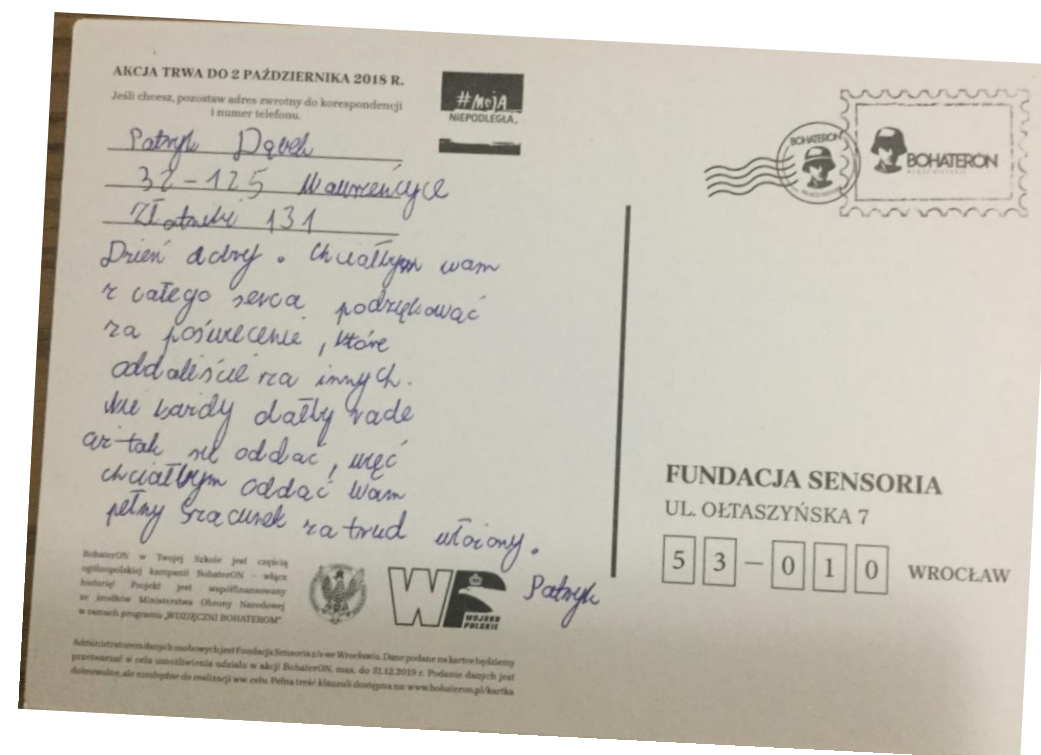 AKCJA TRWA DO 2 PAŹDZIERNIKA 2018 R.
Jeśli chcesz, pozostaw adres zwrotny do korespondencji
i numer telefonu.
#MOJA
NIEPODLEGŁA.
Patryk Dąbek
32-125 Wawrzeńczyce
Złotniki 131
Dzień dobry. Chciałbym wam
z całego serca podziękować
za poświecenie, które
oddaliście za innych.
Nie każdy dałby rade
aż tak się oddać, więc
chciałbym oddać Wam
pełny szacunek za trud włożony.
Patryk
BohaterON w Twojej Szkole jest częścią
ogólnopolskiej kampanii BohaterON - włącz
historię! Projekt jest współfinansowany
ze środków Ministerstwa Obrony Narodowej
w ramach programu „WDZIĘCZNI BOHATEROM".
WP
WOJSKO
POLSKIE
Administratorem danych osobowych jest Fundacja Sensoria z/s we Wrocławiu. Dane podane na kartce będziemy
przetwarzać w celu umożliwienia udziału w akcji BohaterON, max. do 31.12.2019 r. Podanie danych jest
dobrowolne, ale niezbędne do realizacji ww. celu. Pełna treść klauzuli dostępna na: www.bohateron.pl/kartka
BOHATERON
BOHATERON
WŁĄCZ HISTORIĘ
FUNDACJA SENSORIA
UL. OŁTASZYŃSKA 7
53-010 WROCŁAW